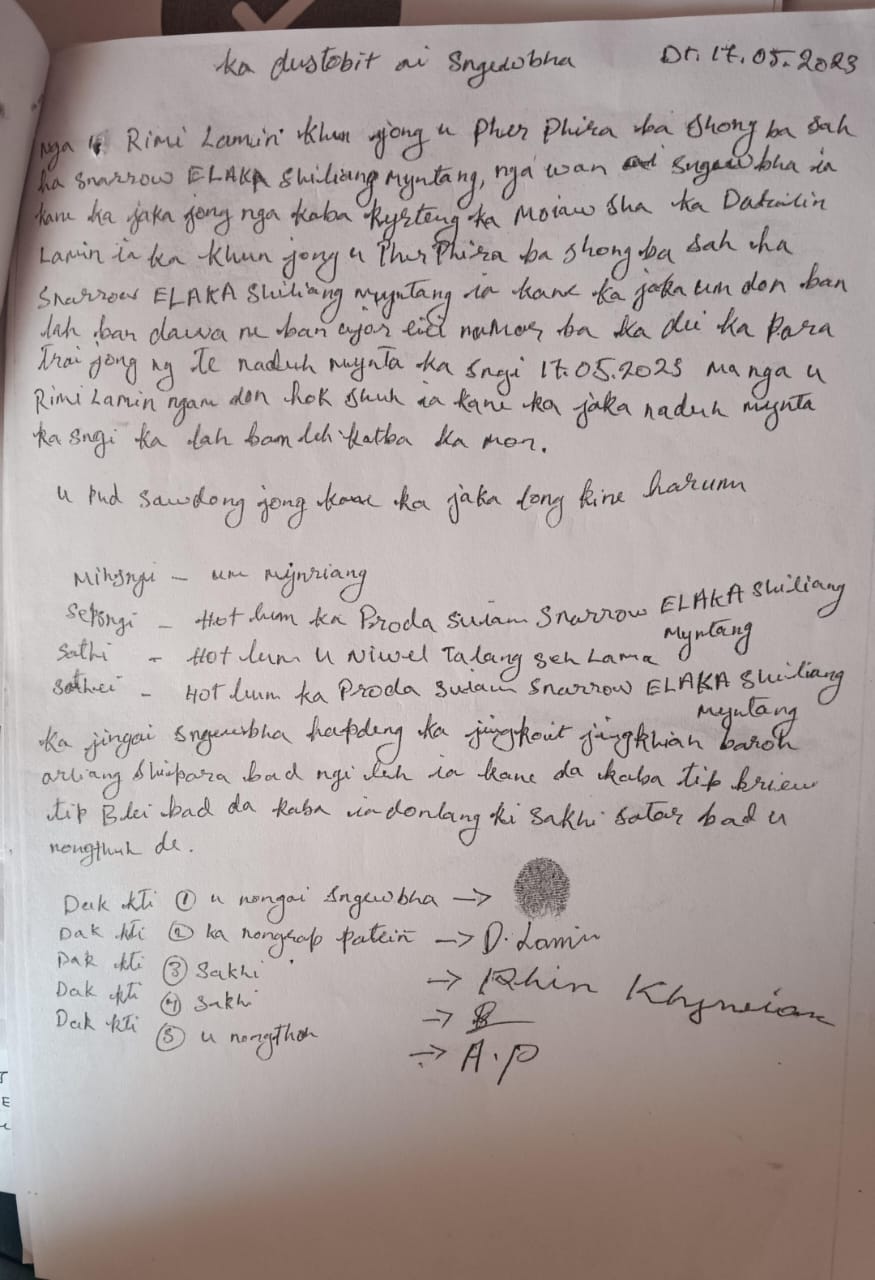 ka dustobit ai Sngewbha Dt. 17.05.2023
Nga u Rimi Lamin khun jong u Pher Phira ba shong ba sah
ha Snarrow ELAKA Shiliang Myntang, nga wan ai sngewbha ia
kane ka jaka jong nga kaba kyrteng ka Moiaw sha ka
Lamin ia ka khun jong u Pher Phira ba shong ba sah ha
Snarrow ELAKA Shiliang myntang ia kane ka jaka um don ban
lah ban dawa ne ban ujor eiei namar ba ka dei ka Para
trai jong ng Te naduh mynta ka sngi 17.05.2023 ma nga u
Rimi Lamin ngam don hok shuh ia kane ka jaka naduh mynta
ka sngi ka lah ban leh katba ka mon.
u pud sawdong jong kane ka jaka long kine harum
Mihsngi - um mynriang
Sepsngi - Hot lum ka Proda Suiam Snarrow ELAKA Shiliang
Myntang
Sathi - Hot lum u Niwel Talang Seh Lama
Sathei - Hot lum ka Proda Suiam Snarrow ELAKA Shiliang
Myntang
ka jingai sngewbha hapdeng ka jingkoit jingkhiah baroh
arliang shipara bad ngi leh ia kane da kaba tip briew
tip Blei bad da kaba iadonlang ki Sakhi Satar bad u
nongthuh de.
Dak kti ① u nongai sngewbha →
Dak kti ② ka nongrap patein → D. Lamin
Dak kti ③ Sakhi → Rhin Khyneiam
Dak kti ④ Sakhi →
Dak kti ⑤ u nongthoh → A.P